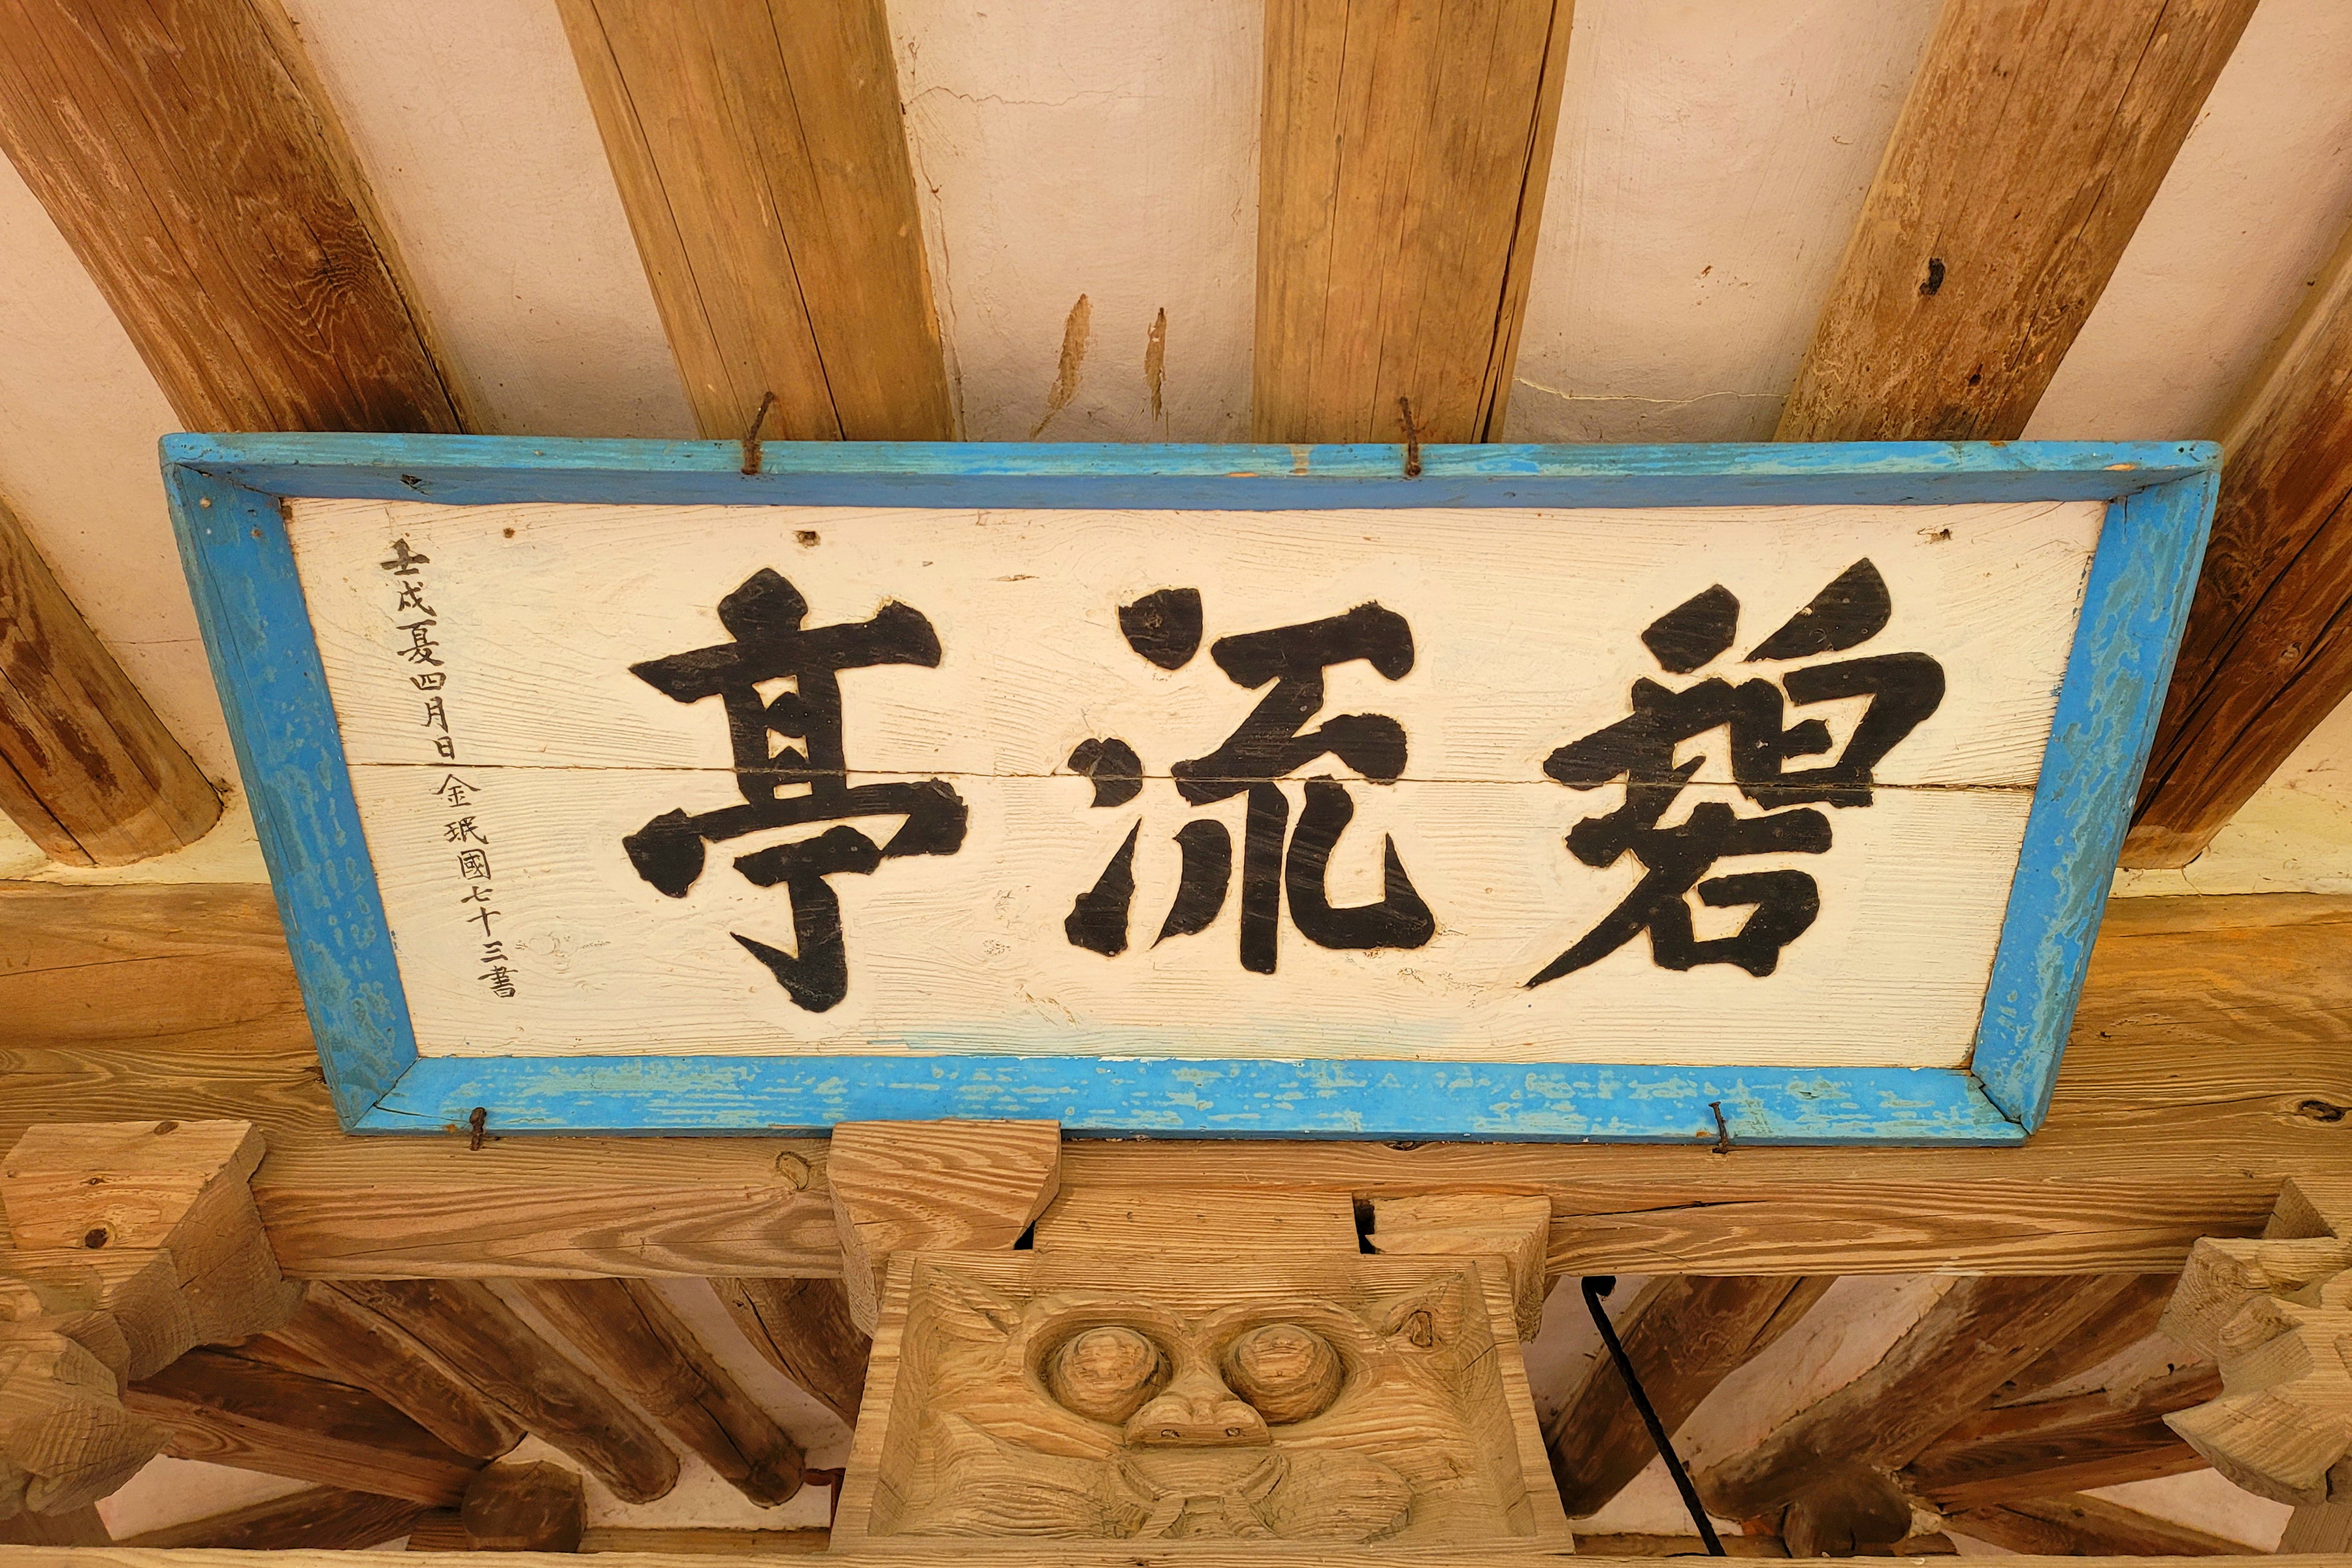 碧流亭
壬戌夏四月日 金珉國七十三書